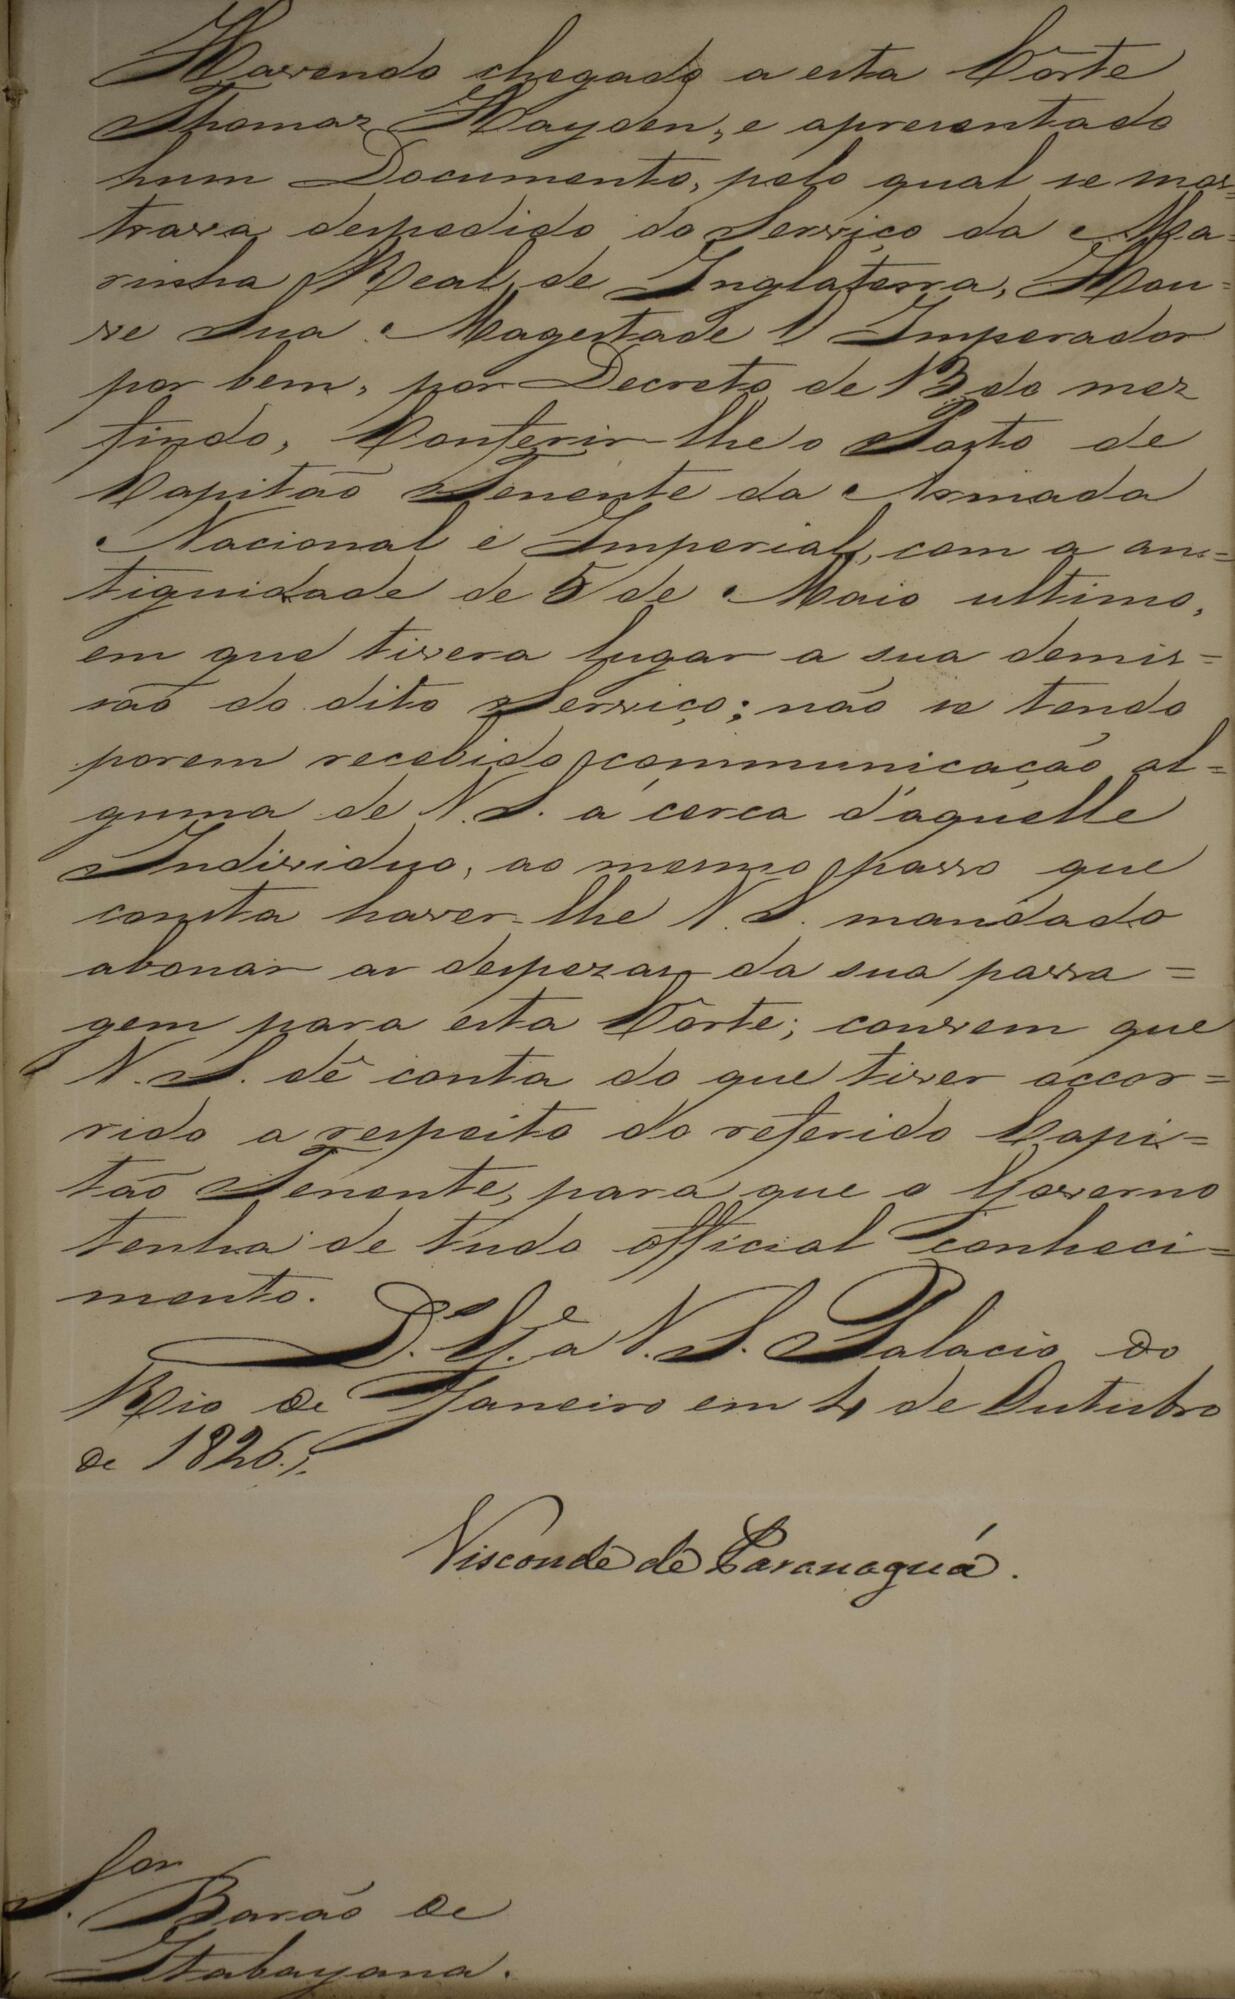 Havendo chegado a esta Côrte
Thomaz Hayden, e apresentado
hum Documento, pelo qual se mos=
trava despedido do Serviço da Ma=
rinha Real de Inglaterra, Hou=
ve Sua Magestade O Imperador
por bem, por Decreto de 13 do mez
findo, Conferir-lhe o Posto de
Capitão Tenente da Armada
Nacional e Imperial, com a an=
tiguidade de 5 de Maio ultimo,
em que tivera lugar a sua demis=
são do dito Serviço; não se tendo
porem recebido communicação al=
guma de V. S. á cerca d'aquelle
Individuo, ao mesmo passo que
consta haver-lhe V. S. mandado
abonar as despezas da sua passa=
gem para esta Côrte; convem que
V. S. dê conta do que tiver occor=
rido a respeito do referido Capi=
tão Tenente, para que o Governo
tenha de tudo official conheci=
mento.
D.s G.e a V. S. Palacio do
Rio de Janeiro em 4 de Outubro
de 1826.
Visconde de Paranaguá.
S.or Barão de
Itabayana.